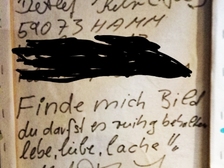 Detlef
59073 HAMM
Finde mich Bild
du darfst es ruhig behalten
lebe, liebe, lache "